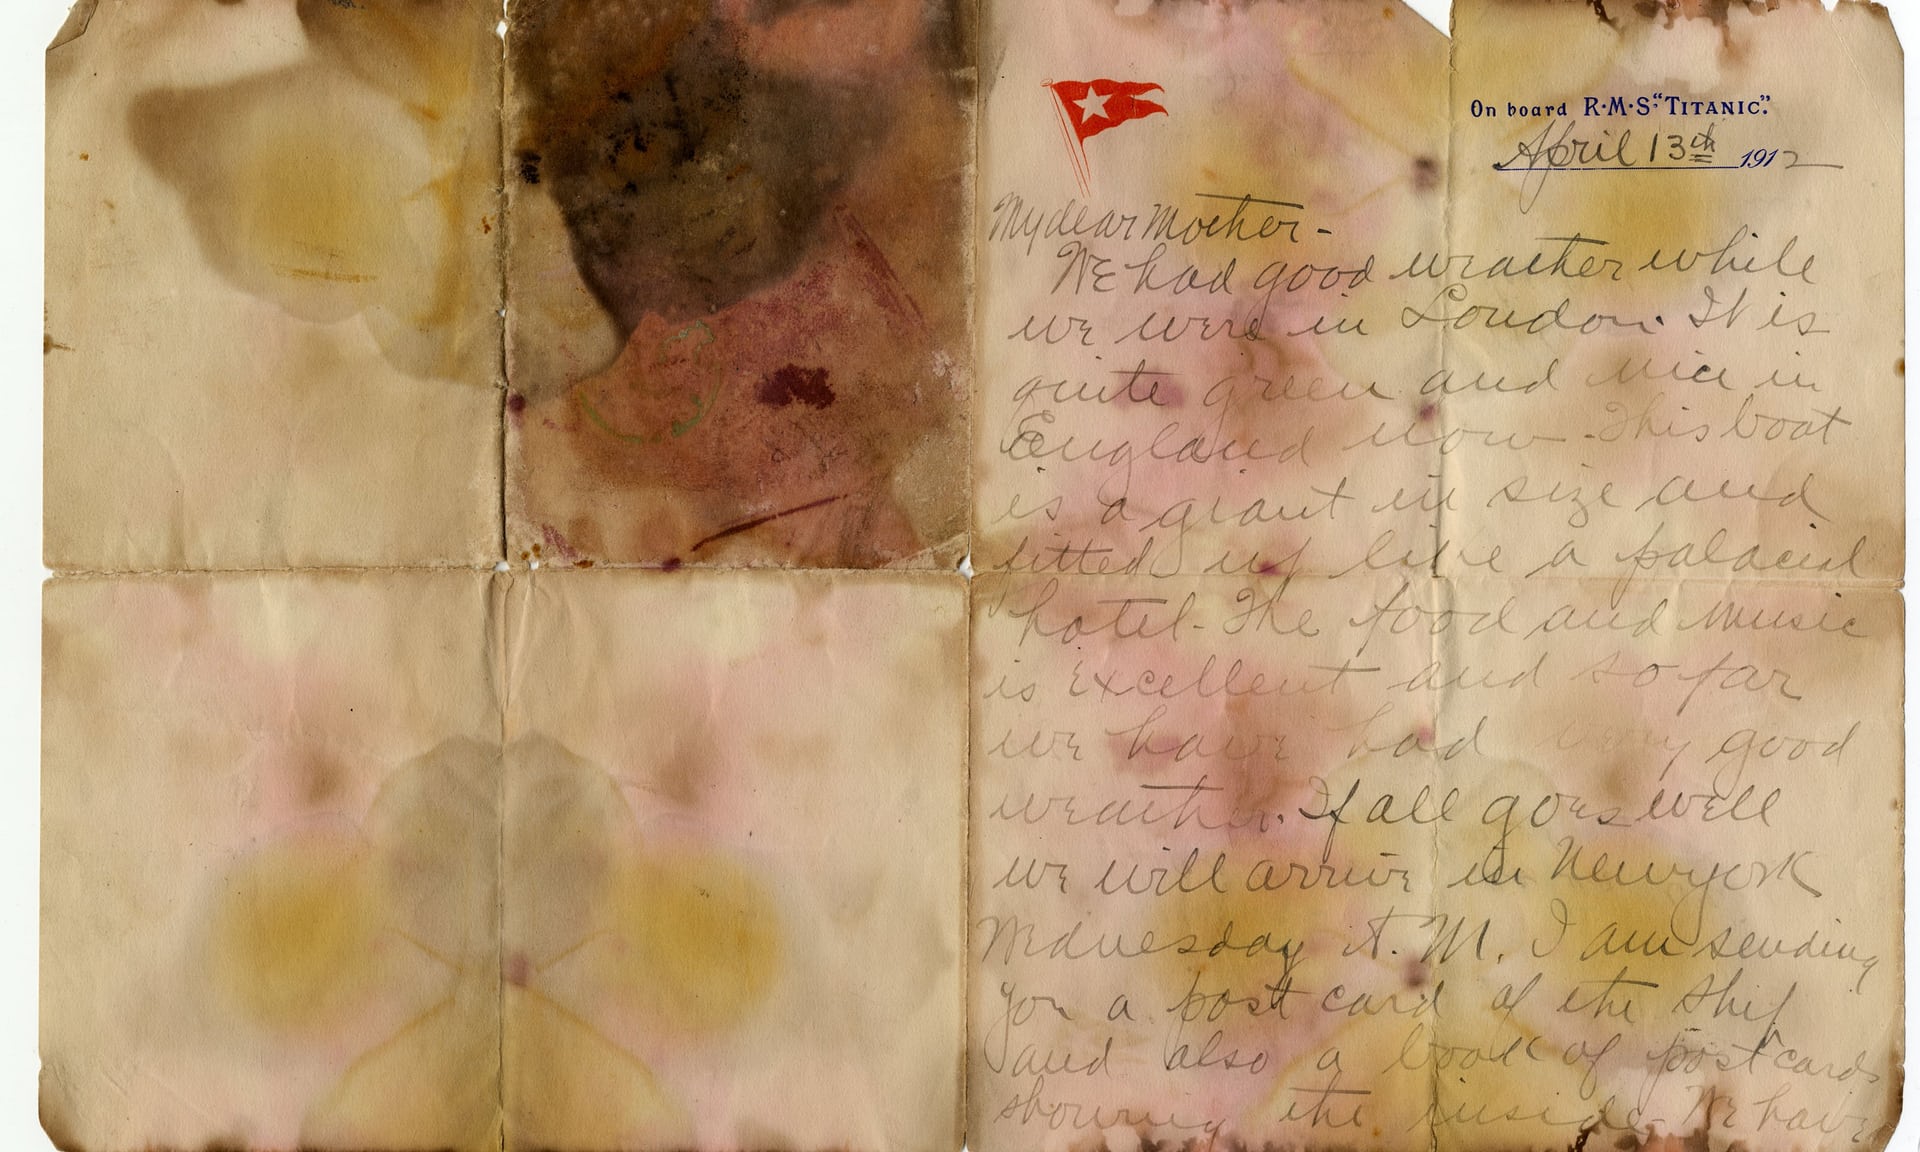 On board R·M·S· "TITANIC".
April 13th 1912
My dear Mother -
We had good weather while
we were in London. It is
quite green and nice in
England now. This boat
is a giant in size and
fitted up like a palacial
hotel. The food and music
is excellent and so far
we have had very good
weather. If all goes well
we will arrive in New York
Wednesday A. M. I am sending
you a post card of the ship
and also a book of postcards
showing the inside. We have